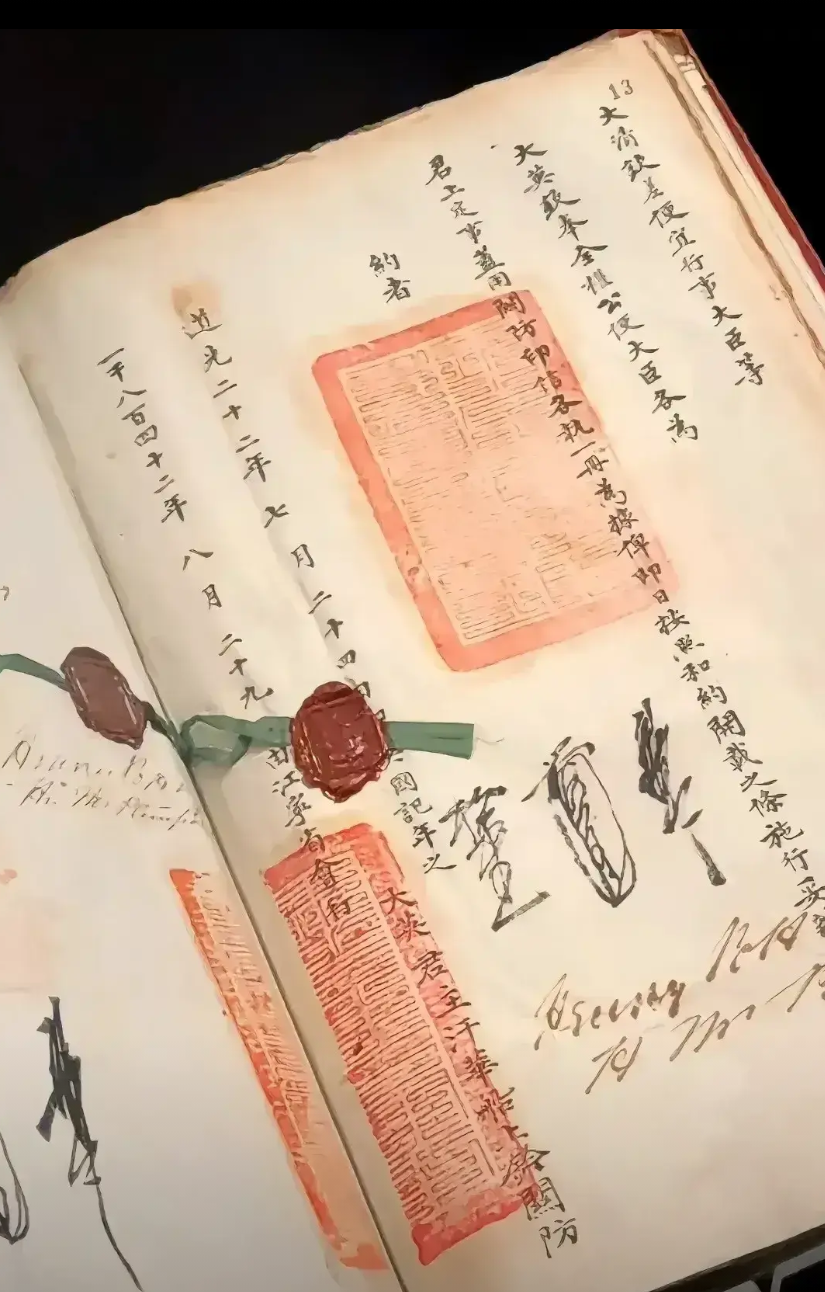 13
大清欽差便宜行事大臣等
大英欽奉全權公使大臣各為
君上定事蓋用關防印信各執一冊為據俾即日按照和約開載之條施行妥
約者
道光二十二年七月二十四日
國記年之
一千八百四十二年八月二十九
由江寧省會行
大英君主汗華船上鈐關防
Henry